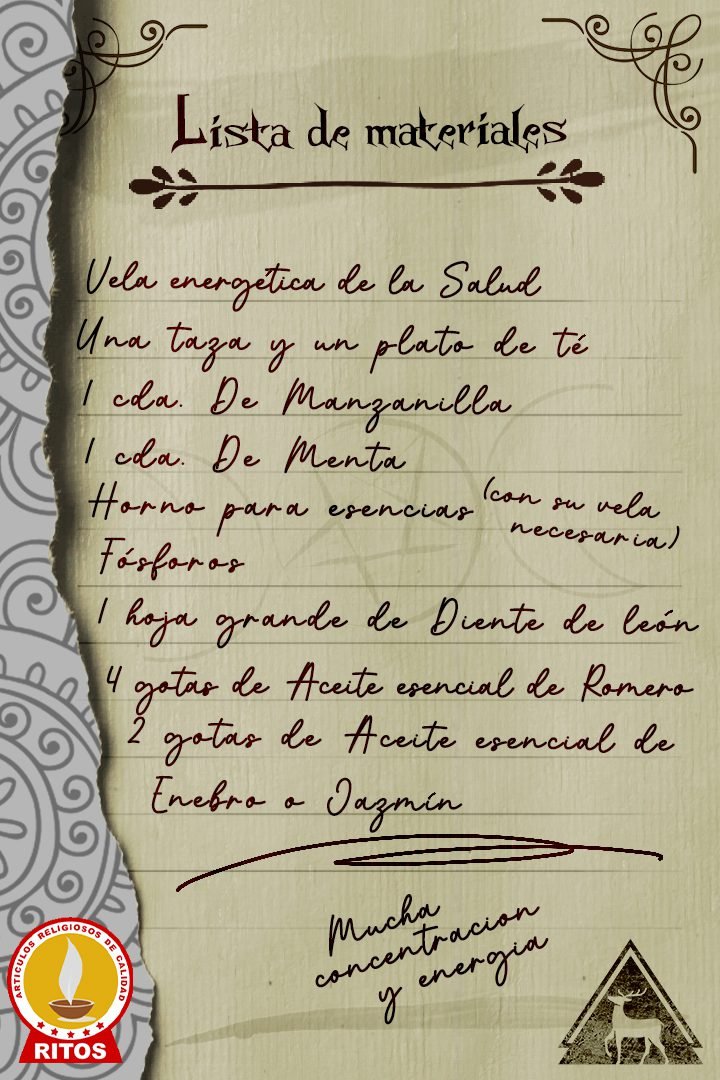 Lista de materiales
Vela energética de la Salud
Una taza y un plato de té
1 cda. De Manzanilla
1 cda. De Menta
Horno para esencias (con su vela
necesaria)
Fósforos
1 hoja grande de Diente de león
4 gotas de Aceite esencial de Romero
2 gotas de Aceite esencial de
Enebro o Jazmín
Mucha
concentracion
y energia
ARTICULOS RELIGIOSOS DE CALIDAD
RITOS